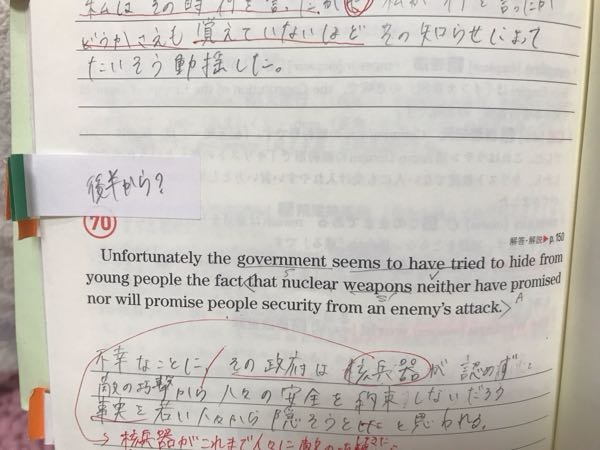 どうかさえも覚えていないほど その知らせによって
たいそう動揺した。
後半から?
70
解答・解説▶p.150
Unfortunately the government seems to have tried to hide from
young people the fact that nuclear weapons neither have promised
nor will promise people security from an enemy's attack.
S V A
不幸なことに、その政府は 核兵器が 認めず
から 人々の安全を約束しないだろう
事実を若い人々から隠そうとした と思われる。
→核兵器がこれまで人々に